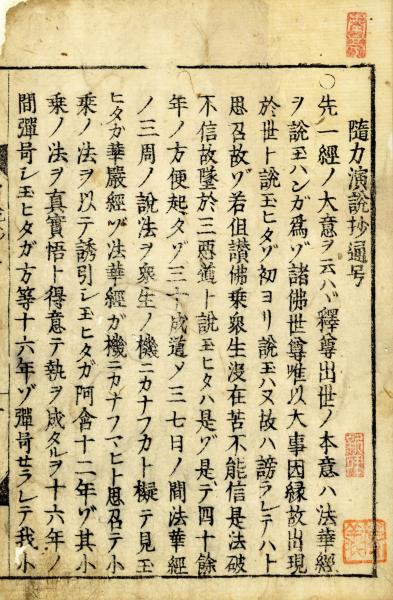 隨力演說抄通号
○先一經ノ大意ヲ云ハヾ釋尊出世ノ本意ハ法華經
ヲ說玉ハンガ爲ゾ諸佛世尊唯以大事因緣故出現
於世ト說玉ヒタゾ初ヨリ說玉ハヌ故ハ謗ラレテハト
思召故ゾ若但讃佛乘衆生没在苦不能信是法破
不信故墜於三惡道ト說玉ヒタハ是ゾ是テ四十餘
年ノ方便起タゾ三十成道メ三七日ノ間法華經
ノ三周ノ說法ヲ衆生ノ機ニカナフカト擬テ見玉
ヒタガ華嚴經ゾ法華經ガ機ニカナフマヒト思召テ小
乘ノ法ヲ以テ誘引シ玉ヒタガ阿含十二年ゾ其小
乘ノ法ヲ眞實悟ト得意テ執ヲ成タルヲ十六年ノ
間彈呵シ玉ヒタガ方等十六年ゾ彈呵セラレテ我小